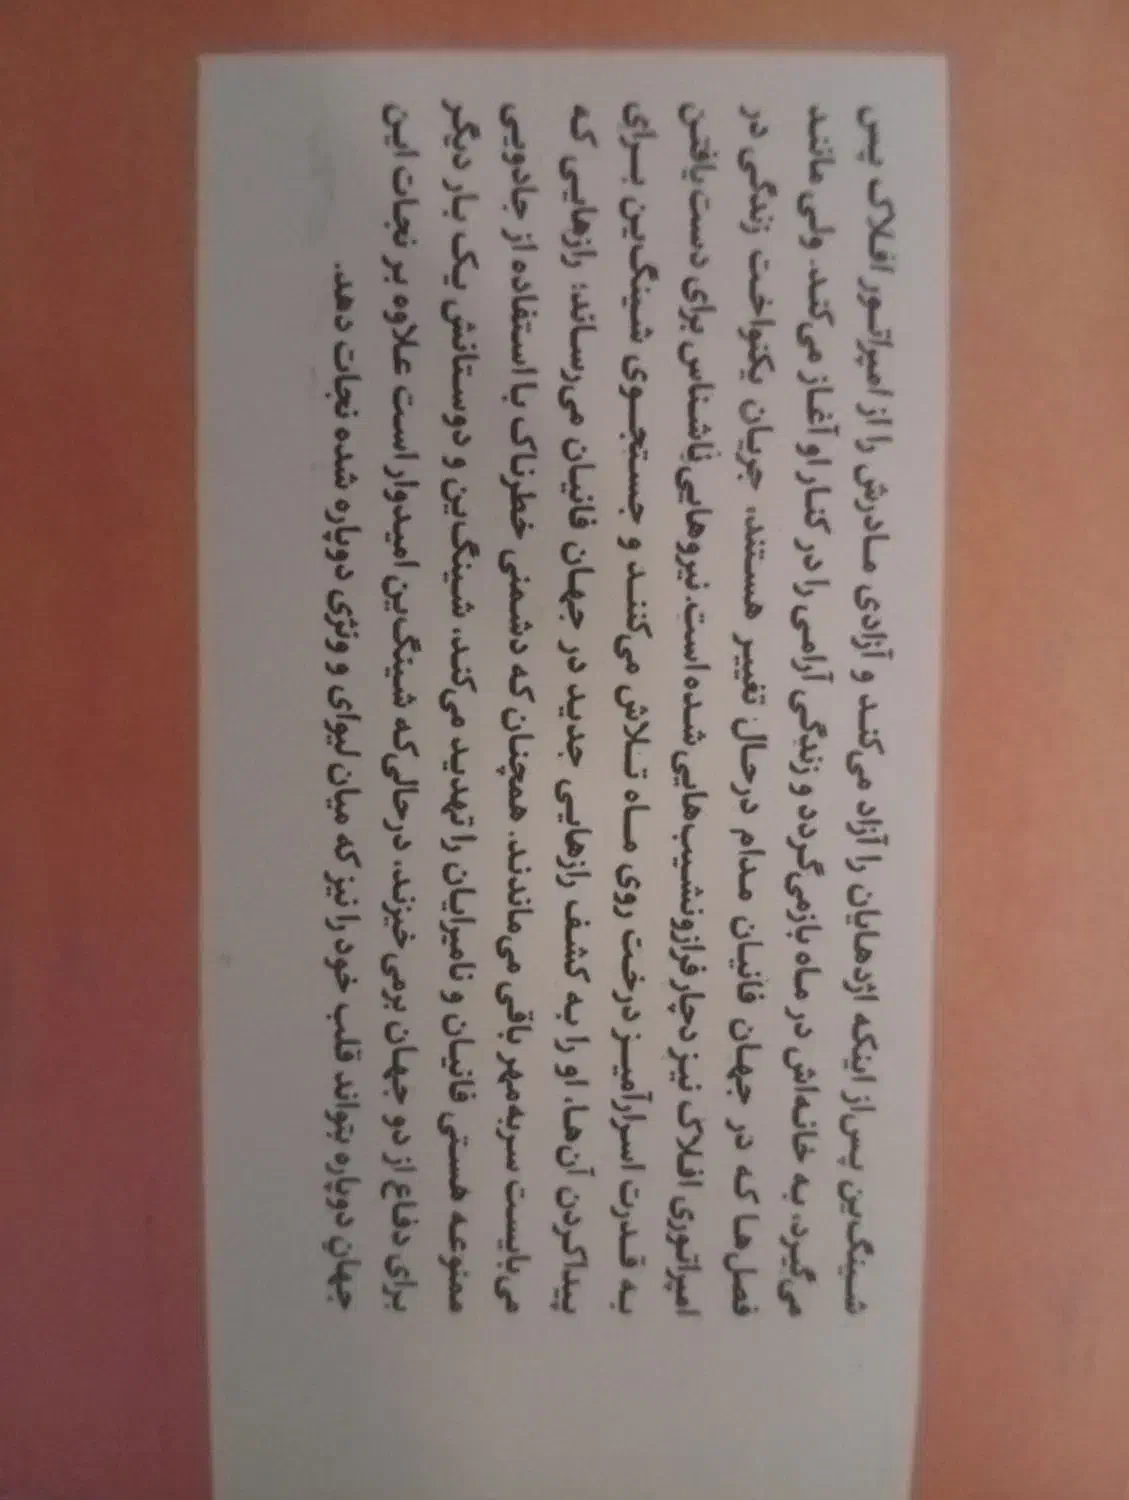 شینگ‌ین پس‌از اینکه اژدهایان را آزاد می‌کند و آزادی مادرش را از امپراتور افلاک پس
می‌گیرد، به خانه‌اش در ماه بازمی‌گردد و زندگی آرامی را در کنار او آغاز می‌کند. ولی مانند
فصل‌ها که در جهان فانیان مدام درحال تغییر هستند، جریان یکنواخت زندگی در
امپراتوری افلاک نیز دچار فرازونشیب‌هایی شده است. نیروهایی ناشناس برای دست یافتن
به قدرت اسرارآمیز درخت روی ماه تلاش می‌کنند و جستجوی شینگ‌ین برای
پیداکردن آن‌ها، او را به کشف رازهایی جدید در جهان فانیان می‌رساند؛ رازهایی که
می‌بایست سربه‌مهر باقی می‌ماندند. همچنان‌که دشمنی خطرناک با استفاده از جادویی
ممنوعه هستی فانیان و نامیرایان را تهدید می‌کند، شینگ‌ین و دوستانش یک بار دیگر
برای دفاع از دو جهان برمی خیزند، درحالی‌که شینگ‌ین امیدوار است علاوه بر نجات این
جهانِ دوپاره بتواند قلب خود را نیز که میان لیوای و ونژی دوپاره شده نجات دهد.